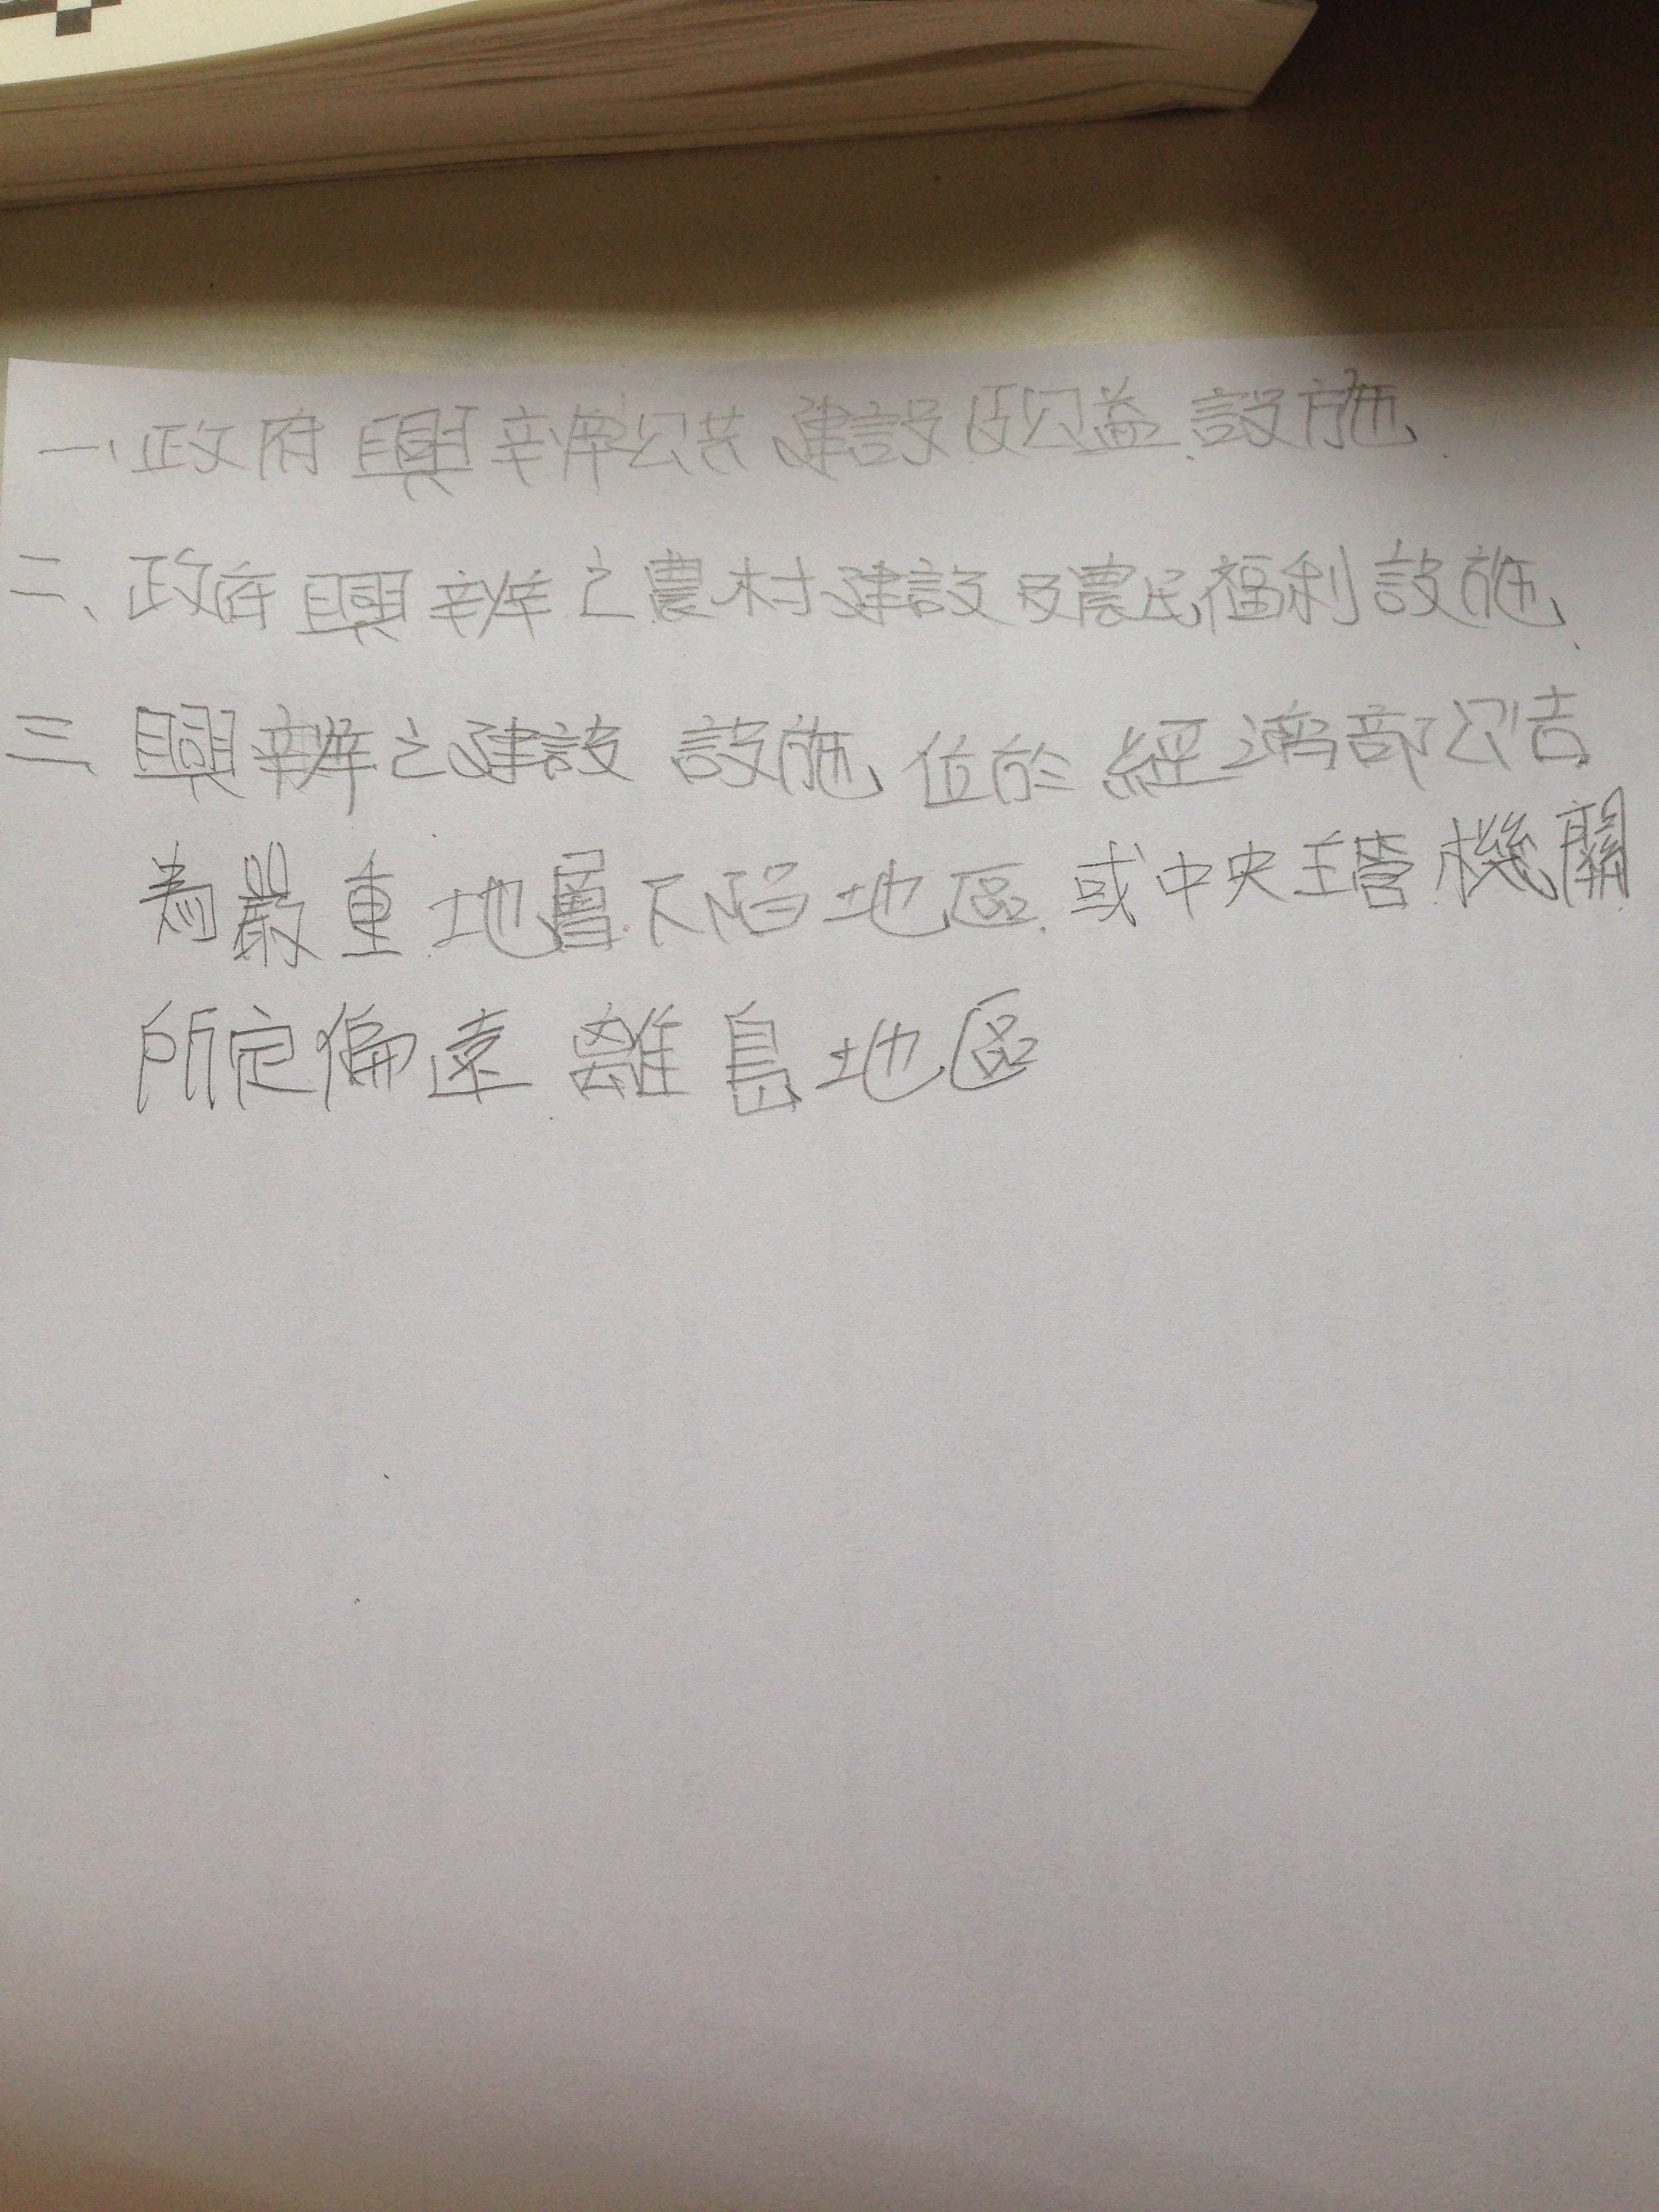 一、政府興辦公共建設及公益設施
二、政府興辦之農村建設及農民福利設施、
三、興辦之建設 設施 位於 經濟部公告
為嚴重地層下陷地區、或中央主管機關
所定偏遠 離島地區